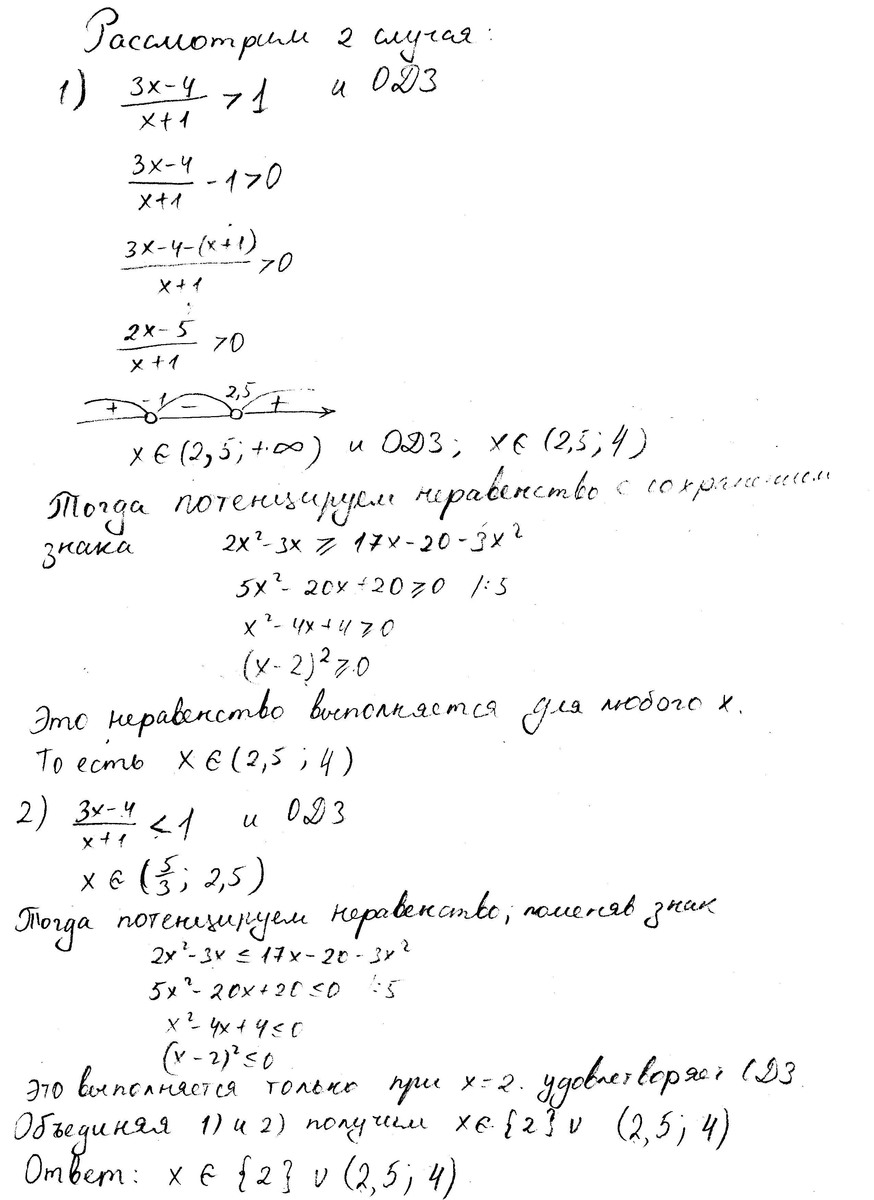 Рассмотрим 2 случая:
1) (3x-4)/(x+1) > 1 и ОДЗ
(3x-4)/(x+1) - 1 > 0
(3x-4-(x+1))/(x+1) > 0
(2x-5)/(x+1) > 0
+ -1 - 2,5 +
x ∈ (2,5; +∞) и ОДЗ; x ∈ (2,5; 4)
Тогда потенцируем неравенство с сохранением
знака 2x²-3x ⩾ 17x-20-3x²
5x²-20x+20 ⩾ 0 /:5
x²-4x+4 ⩾ 0
(x-2)² ⩾ 0
Это неравенство выполняется для любого x.
То есть x ∈ (2,5; 4)
2) (3x-4)/(x+1) < 1 и ОДЗ
x ∈ (5/3; 2,5)
Тогда потенцируем неравенство, поменяв знак
2x²-3x ≤ 17x-20-3x²
5x²-20x+20 ≤ 0 :5
x²-4x+4 ≤ 0
(x-2)² ≤ 0
Это выполняется только при x=2. удовлетворяет ОДЗ
Объединяя 1) и 2) получим x ∈ {2} ∪ (2,5; 4)
Ответ: x ∈ {2} ∪ (2,5; 4)